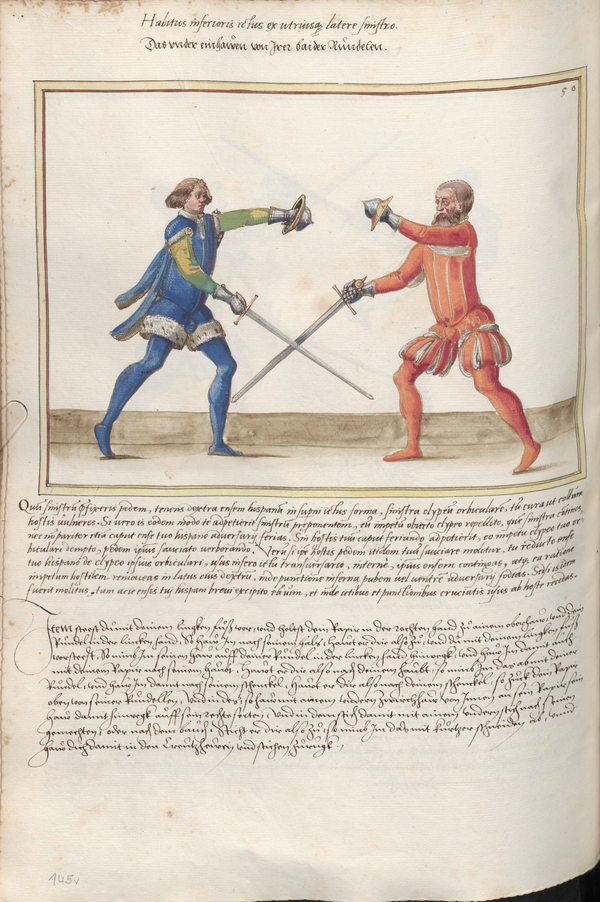 Habitus inferioris ictus ex utriusque latere sinistro.
Das vnder einhauwen von Irer baider Rundelen.
50
Quum sinistrum praefixeris pedem, tenens dextra ensem hispanum in superni ictus forma, sinistra clypeum orbicularem, tu cura ut collum
hostis vulneres. Si vero is eodem modo te adpetierit sinistrum proponentem, eum impetum obiecto clypeo repellito, quem sinistra contines,
nec non pariter etiam caput ense tuo hispano adversarij ferias. Sin hostis tuum caput feriundo adpetierit, eo impetu clypeo tuo or-
biculari dempto, pedem ipsius sauciato verberando. Verum si ipse hostis pedem itidem tuum sauciare molitur, tu reducto ense
tuo hispano de clypeo ipsius orbiculari, usus infero ictu transversario, interne, ipsius ensem contingas, atque ea ratione
impetum hostilem removeas in latus eius dextrum, inde punctione inferna pubem vel ventrem adversarij fodias. Sed si is idem
fuerit molitus, tum acie ensis tui hispani brevi excipito eam vim, et inde ictibus et punctionibus cruciatis usus ab hoste recedas.
Item steestu mit deinem lingken fuoss vor, vnd helst dein Rapir in der rechten hand zu ainem oberhaw, vnd dein
Rundel in der lincken hand, so haw Im nach seinem hals, Hawt er dir also zu, vnd du mit deinem lingken fuoss
vorsteest, so nimb Im seinen haw auff deiner Rundel in der lincken hand hinweg vnd haw Im damit auch
mit deinem Rapir nach seinem haubt. Hawt er dir also nach deinem haubt, so nimb Im das ab mit deiner
Rundel, vnd haw Im damit nach seinem schenckel, Hawt er dir also nach deinem schenckel, so zuck dein Rapir
oben von seiner Rundellen, vnd in des so far mit ainem vndern zwirchhaw von Innen an sein Rapir, sein
haw damit hinwegk auff sein rechte seitten, vnd in dem stich damit mit ainem vndern stich nach seinen
gemechten, oder nach dem bauch. Sticht er dir also zu so nimb Im das mit kurtzer schneiden ab, vnnd
haw dich damit in den Creutzhewen, vnd stichen zuruck.
145v